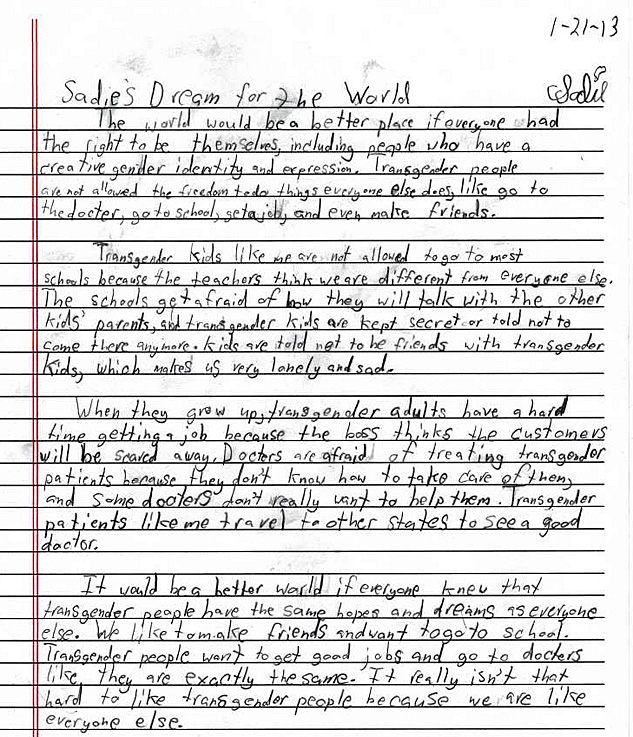 1-21-13
Sadie's Dream for the World Sadie
The world would be a better place if everyone had
the right to be themselves, including people who have a
creative gender identity and expression. Transgender people
are not allowed the freedom to do things everyone else does, like go to
the docter, go to school, get a job, and even make friends.
Transgender kids like me are not allowed to go to most
schools because the teachers think we are different from everyone else.
The schools get afraid of how they will talk with the other
kids' parents, and transgender kids are kept secret or told not to
come there anymore. Kids are told not to be friends with transgender
kids, which makes us very lonely and sad.
When they grow up, transgender adults have a hard
time getting a job because the boss thinks the customers
will be scared away. Docters are afraid of treating transgender
patients because they don't know how to take care of them,
and some docters don't really want to help them. Transgender
patients like me travel to other states to see a good
doctor.
It would be a better world if everyone knew that
transgender people have the same hopes and dreams as everyone
else. We like to make friends and want to go to school.
Transgender people want to get good jobs and go to docters
like they are exactly the same. It really isn't that
hard to like transgender people because we are like
everyone else.